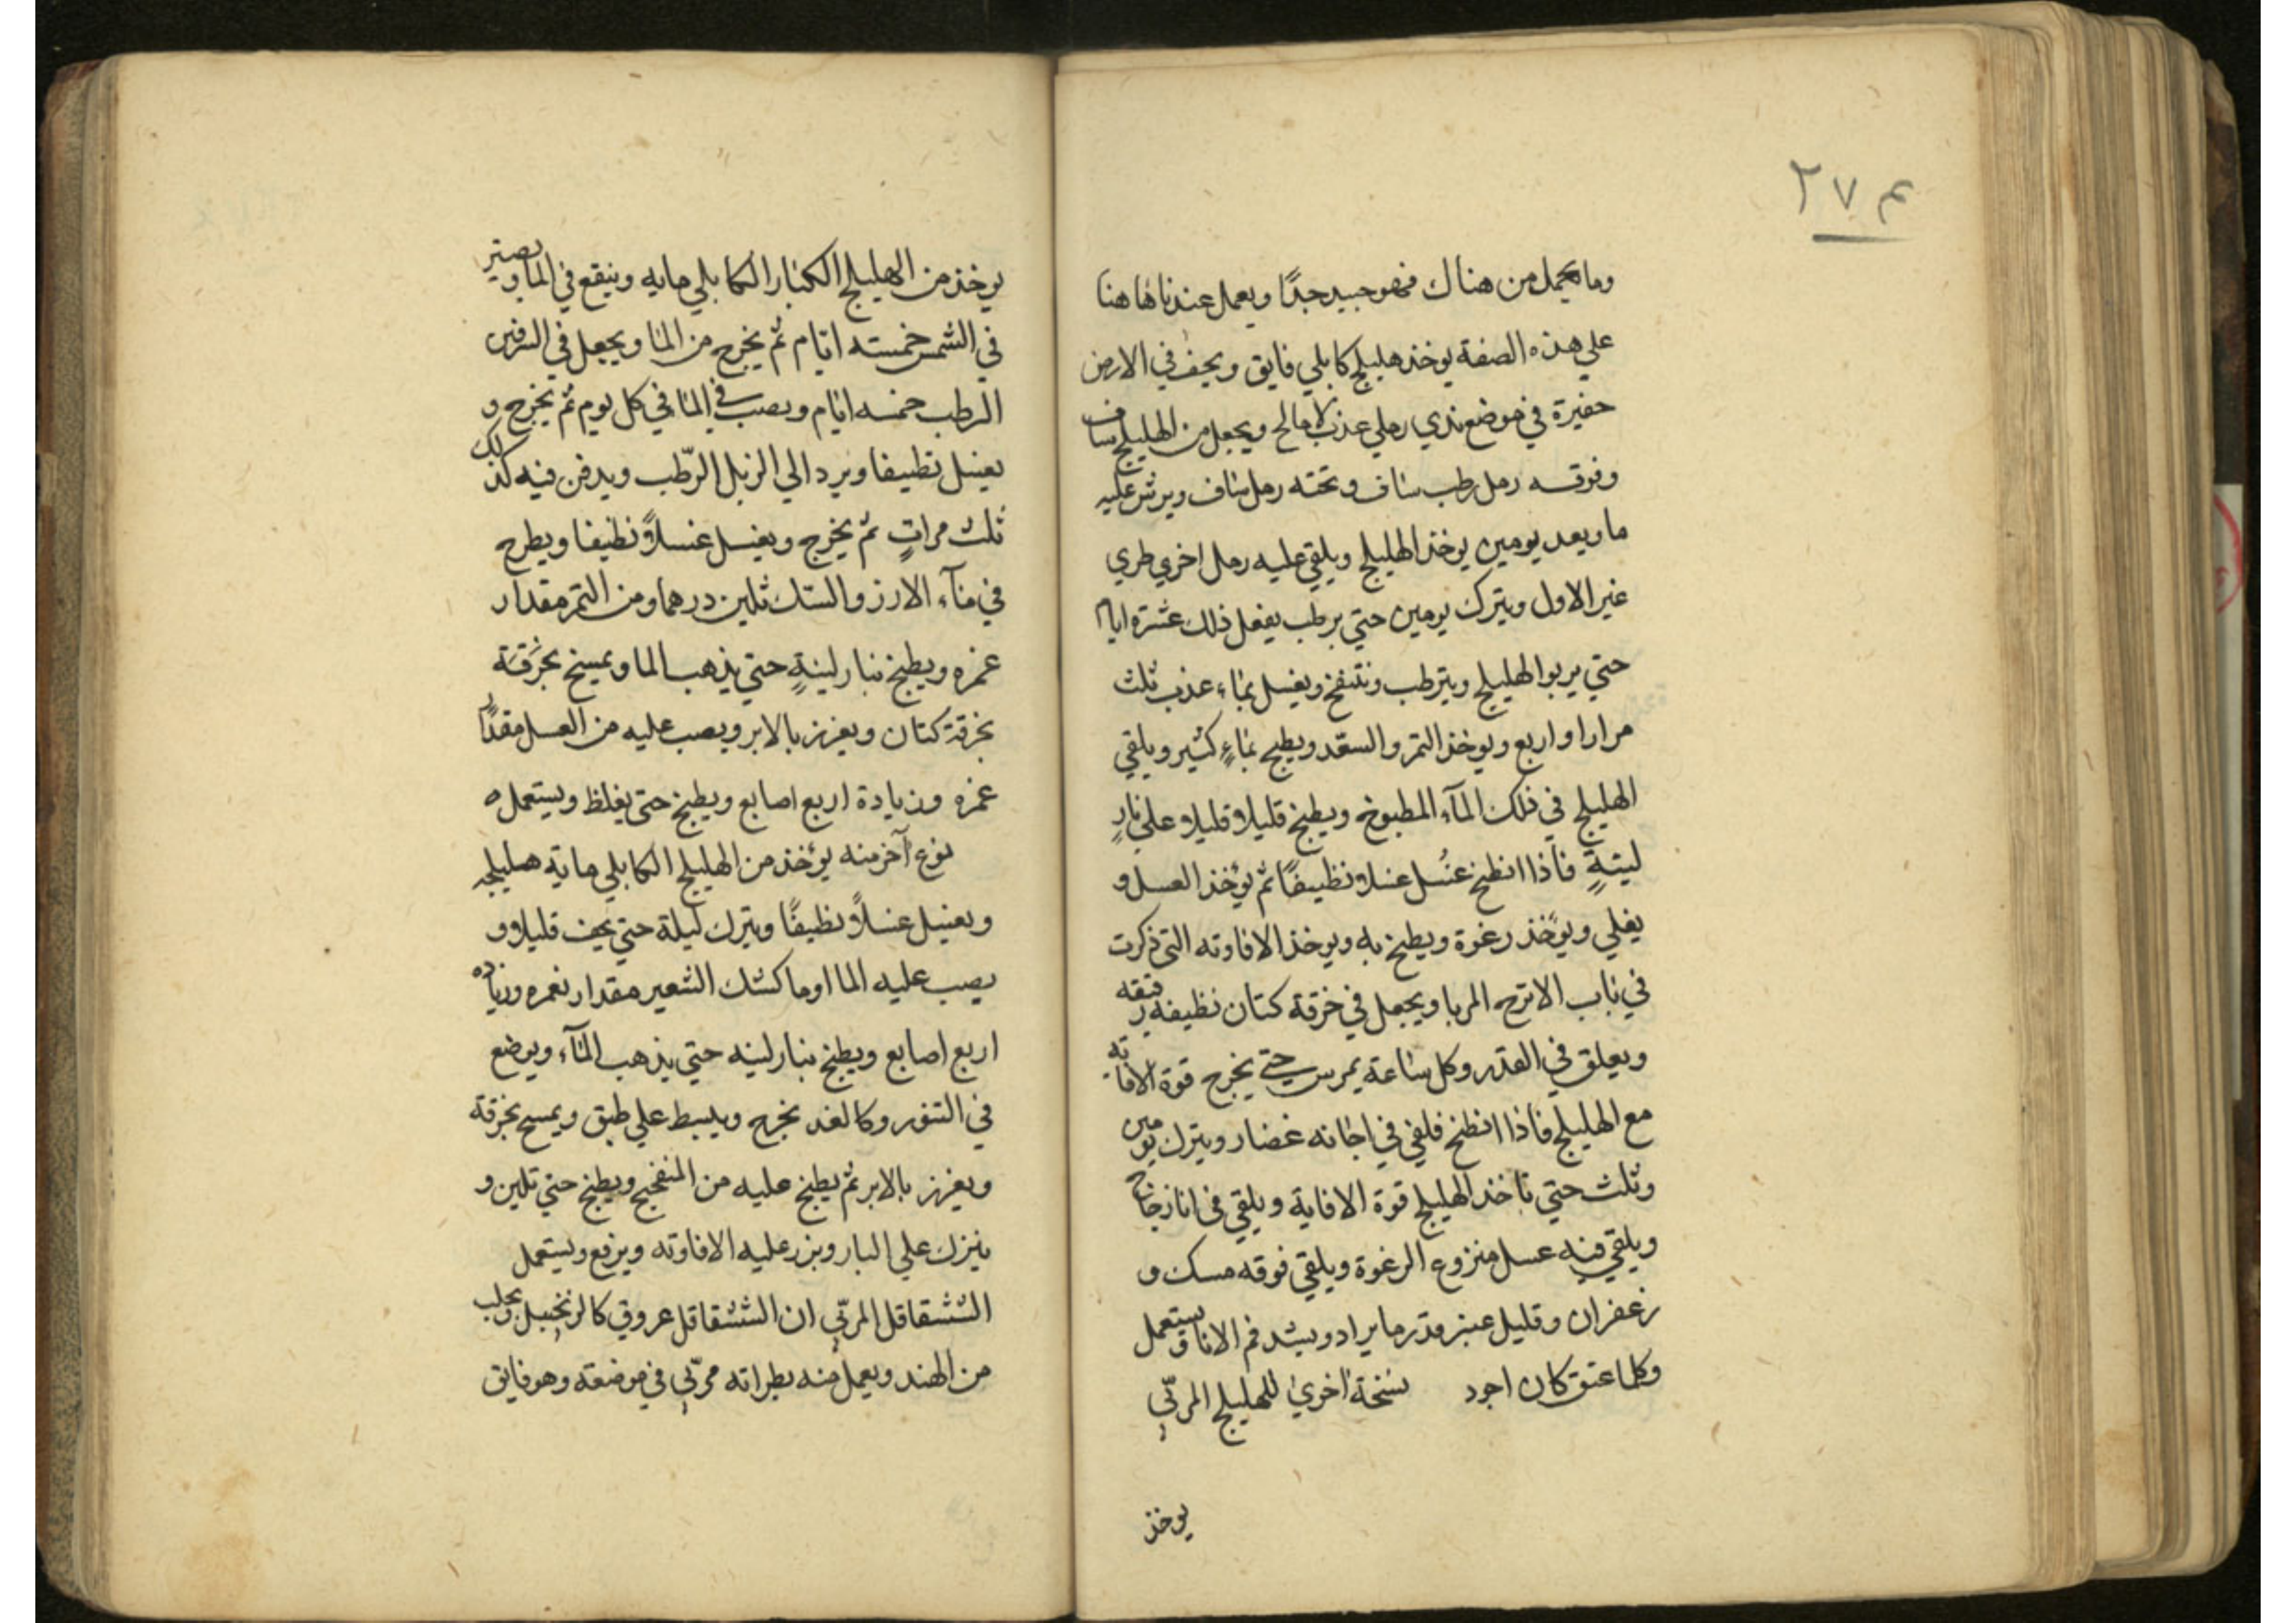 ٢٧٤
وما يحمل من هناك فهو جيد جدًا ويعمل عندنا هاهنا
علي هذه الصفة يوخذ هليلج كابلي فايق ويحف في الارض
حفيرة في موضع ندي رملي عذب لا مالح ويجعل من الهليلج ساف
وفوقه رمل رطب ساف وتحته رمل ساف ويرش عليه
ما وبعد يومين يوخذ الهليلج ويلقي عليه رمل اخري طري
غير الاول ويترك يومين حتي يرطب يفعل ذلك عشرة ايام
حتي يربوا الهليلج ويترطب وينتفخ ويغسل بماء عذب ثلث
مرارا واربع ويوخذ التمر والسعد ويطبخ بماءٍ كثير ويلقي
الهليلج في ذلك المآء المطبوخ ويطبخ قليلا قليلا علي نارٍ
لينةٍ فاذا انطبخ غسل غسلا نظيفًا ثم يؤخذ العسل و
يغلي ويؤخذ رغوة ويطبخ به ويوخذ الافاوته التي ذكرت
في باب الاترج المربا ويجعل في خرقة كتان نظيفه رقيقه
ويعلق في القدر وكل ساعة يمرس حتي يخرج قوة الافاته
مع الهليلج فاذا انطبخ فلقي في اجانه غضار ويترك يومين
وثلث حتي تاخذ الهليلج قوة الافاية ويلقي في انا زجاج
ويلقي فيه عسل منزوع الرغوة ويلقي فوقه مسك و
زعفران وقليل عنبر قدر ما يراد ويشد فم الانا ويستعمل
وكلما عتق كان اجود نسخة اخري للهليلج المربّي
يوخذ
يوخذ من الهليلج الكبار الكابلي مايه وينقع في الما ويصير
في الشمس خمسته ايّام ثم يخرج من الما ويجعل في السرقين
الرطب خمسه ايام ويصب في الما في كل يوم ثم يخرج و
يغسل نظيفا ويرد الي الزبل الرّطب ويدفن فيه كذلك
ثلث مراتٍ ثم يخرج ويغسل غسلاً نظيفا ويطرح
في مآء الارز والسّك ثلثين درهما ومن التمر مقدار
غمره ويطبخ بنار لينةٍ حتي يذهب الما ويمسخ بخرقة
بخرقة كتان ويغرز بالابر ويصب عليه من العسل مقدار
غمره وزيادة اربع اصابع ويطبخ حتي يغلظ ويستعمل ه
نوع آخر منه يؤخذ من الهليلج الكابلي ماية هليلجه
ويغسل غسلاً نظيفًا ويترك ليلة حتي يجف قليلا و
يصب عليه الما او ما كشك الشعير مقدار نغمره وزياده
اربع اصابع ويطبخ بنار لينه حتي يذهب المآء ويوضع
في التنور وكالغد يخرج ويبسط علي طبق ويمسح بخرقة
ويغرز بالابر ثم يطبخ عليه من المنفجيح ويطبخ حتي تلين و
ينزل علي البار ويزر عليه الافاوته ويرفع ويستعمل
الشقاقل المربّي ان الششقاقل عروق كالزنجبيل يجلب
من الهند ويعمل منه بطراته مربّي في موضعه وهو فايق